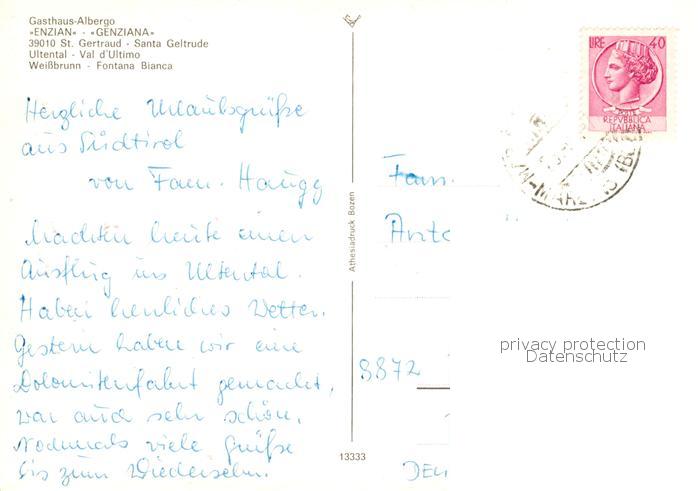 Gasthaus-Albergo
»ENZIAN« - «GENZIANA»
39010 St. Gertraud - Santa Geltrude
Ultental - Val d'Ultimo
Weißbrunn - Fontana Bianca
Herzliche Urlaubsgrüße
aus Südtirol
von Fam. Haugg
Machten heute einen
Ausflug ins Ultental.
Haben herrliches Wetter.
Gestern haben wir eine
Dolomitenfahrt gemacht,
war auch sehr schön.
Nochmals viele Grüße
bis zum Wiedersehn.
Athesiadruck Bozen
13333
LIRE 40
POSTE
REPVBBLICA
ITALIANA
Fam.
8872
privacy protection
Datenschutz